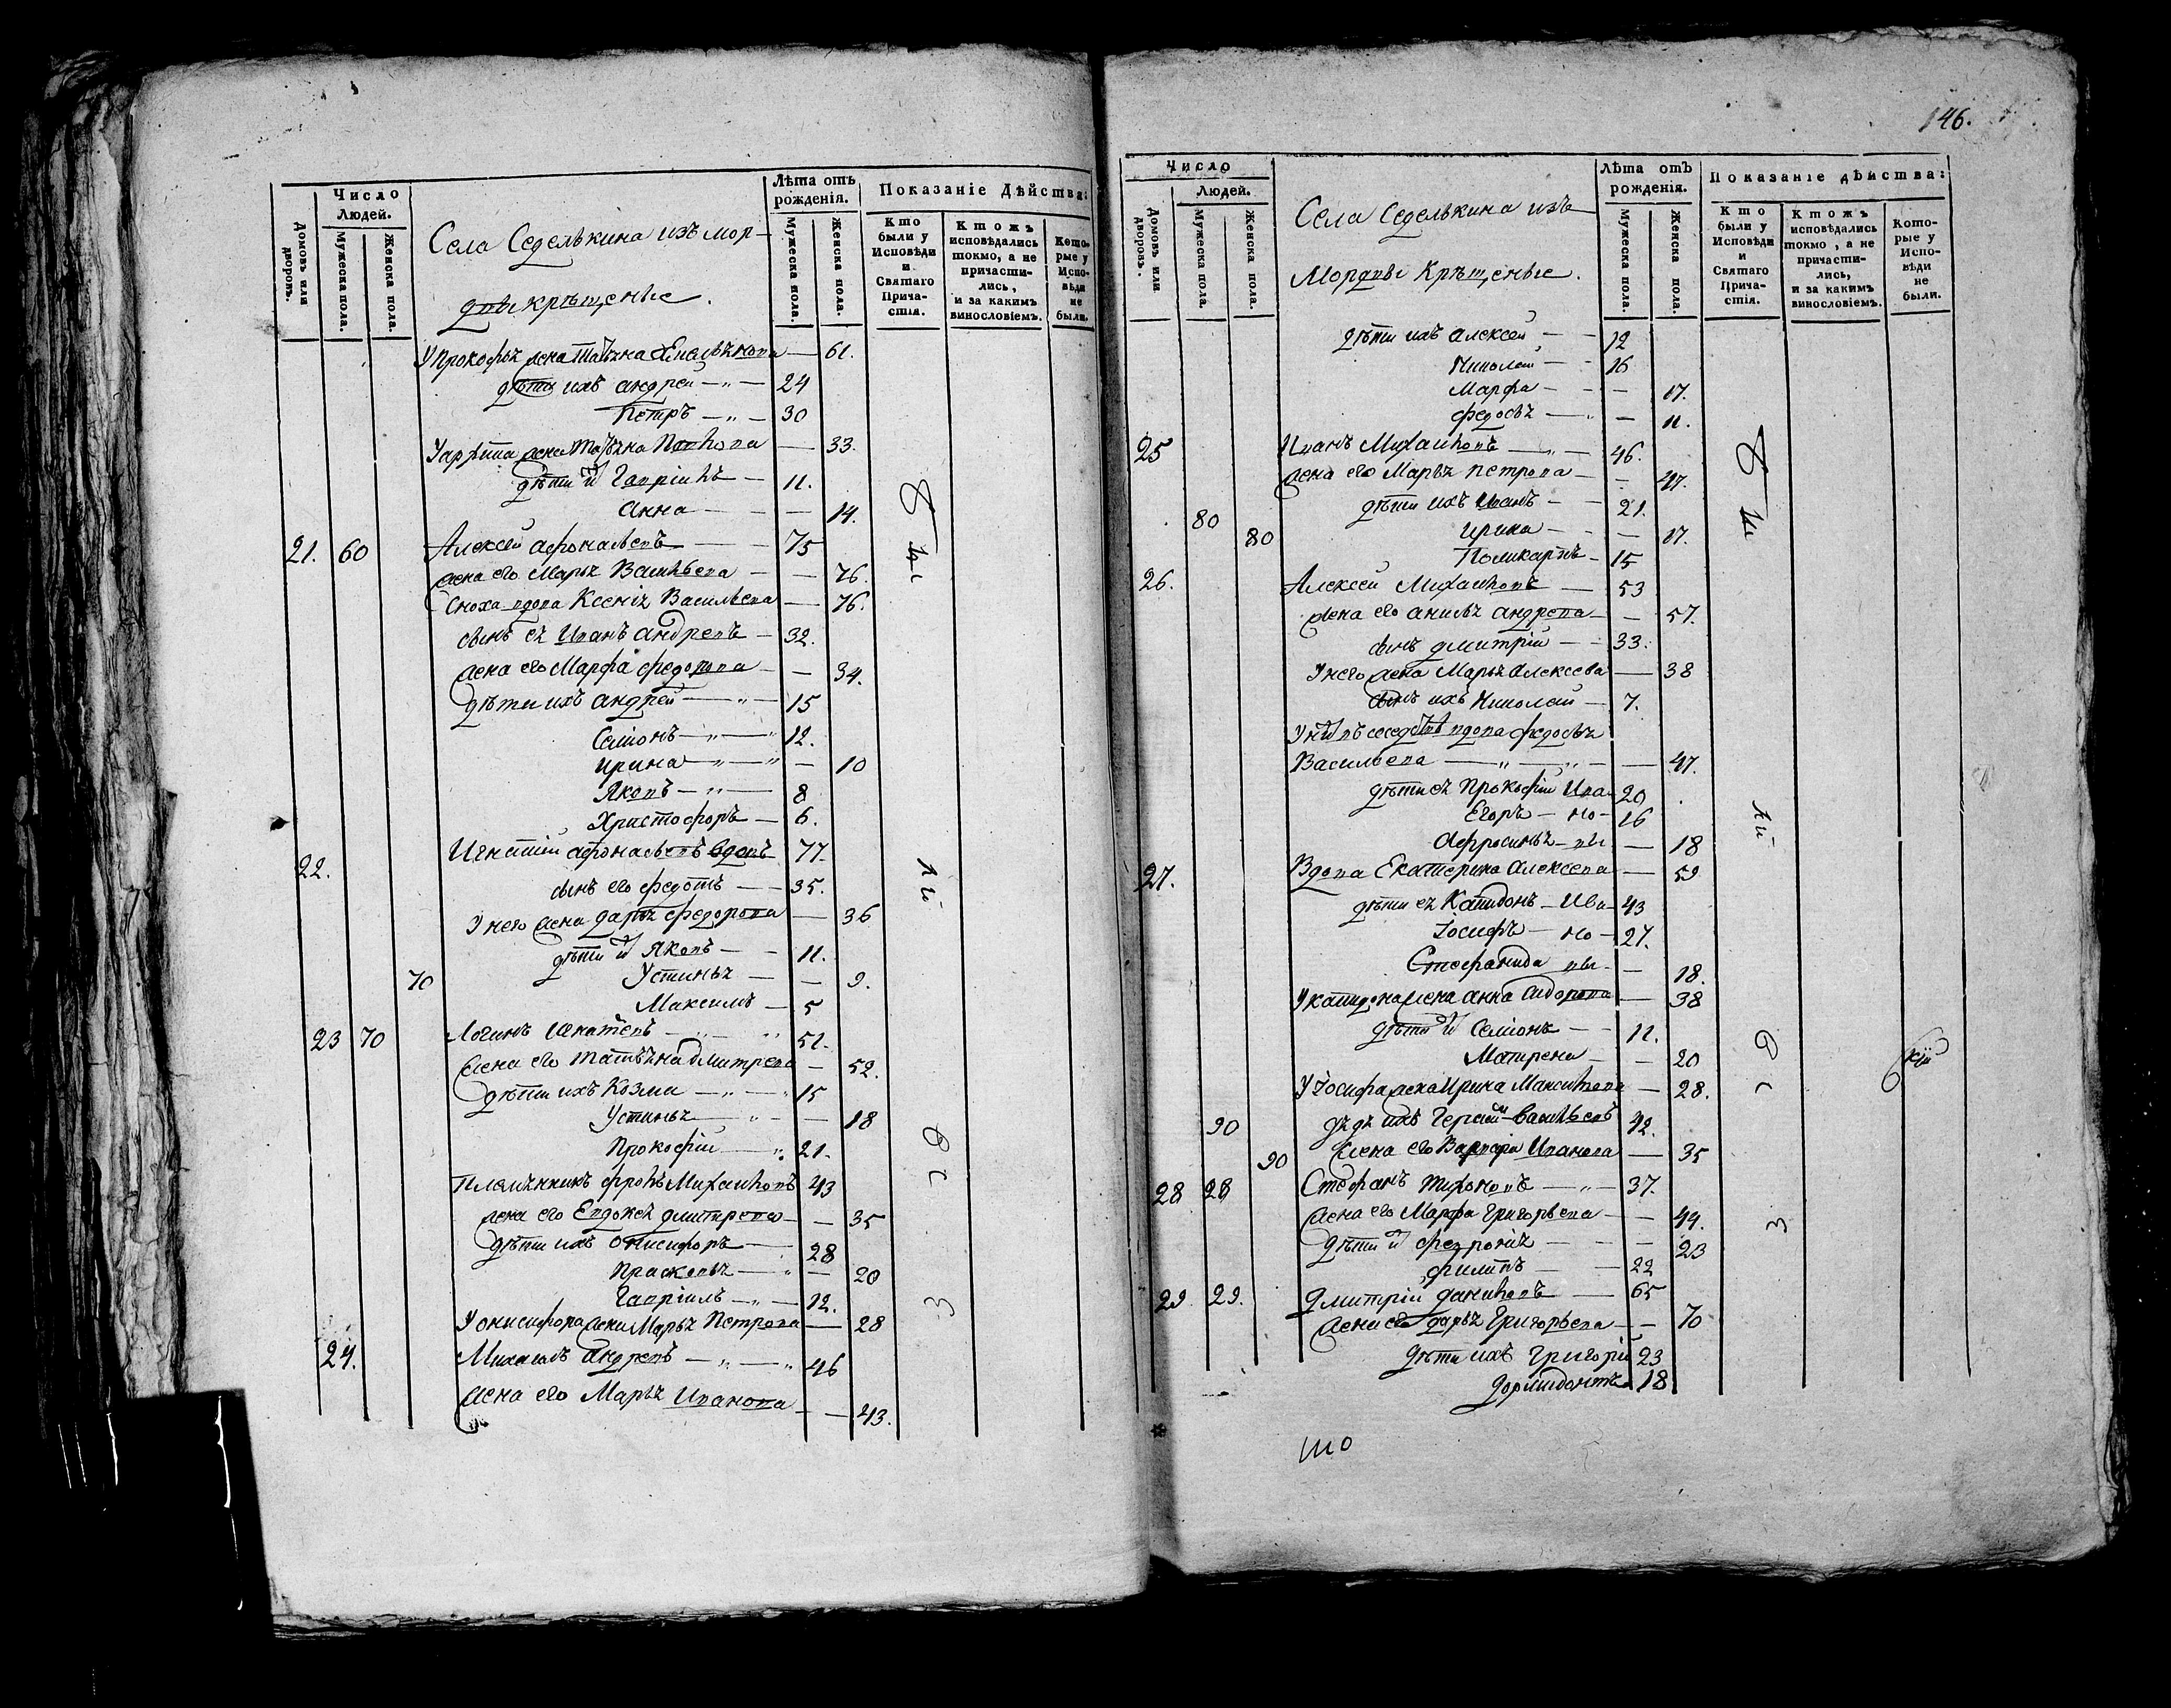 Число
Людей.
Домовъ или дворовъ.
Мужеска пола.
Женска пола.
Села Седелькина изъ мор-
двы крѣщеные.
Лѣта отъ рожденія.
Мужеска пола.
Женска пола.
Показаніе Дѣйства:
Кто были у Исповѣди и Святаго Прича-стія.
Ктожъ исповѣдались токмо, а не причасти-лись, и за какимъ винословіемъ.
Кото-рые у Испо-вѣди не были.
У Прокофья жена Татьяна — 61.
дѣти ихъ Андрей — 24
Петръ — 30
жена Татьяна — 33.
дѣти их Гавріилъ — 11.
Анна — 14.
21. 60 Алексей Афонасьевъ — 75
жена его Марья Васильева — 76.
Сноха вдова Ксенія Васильева — 76.
сынъ ея Иванъ Андреевъ — 32.
жена его Марфа Федотова — 34.
дѣти ихъ Андрей — 15
Семіонъ — 12.
Ирина — 10
Яковъ — 8
Христофоръ — 6.
22. Игнатій Афонасьевъ вдовъ 77.
сынъ его Федотъ — 35.
У него жена Дарья Федорова — 36
дѣти их Яковъ — 11.
70 Устинья — 9.
Максимъ — 5
23 70 Логинъ Игнатьевъ — 51.
жена его Татьяна Дмитрева — 52.
дѣти ихъ Козма — 15
Устинья — 18
Прокофій — 21.
Племянникъ Фролъ Михайловъ 43
жена его Евдокея Дмитрева — 35
дѣти ихъ Онисифоръ — 28
Прасковья — 20
Гавріилъ — 12.
У Онисифора жена Марья Петрова — 28
24. Михаилъ Андреевъ — 46
жена его Марья Иванова — 43.
146.
Число
Людей.
Домовъ или дворовъ.
Мужеска пола.
Женска пола.
Села Седелькина изъ
Мордвы Крѣщеные.
Лѣта отъ рожденія.
Мужеска пола.
Женска пола.
Показаніе дѣйства:
Кто были у Исповѣди и Святаго Прича-стія.
Ктожъ исповѣдались токмо, а не причасти-лись, и за какимъ винословіемъ.
Кото-рые у Испо-вѣди не были.
дѣти ихъ Алексей — 12
Николай — 16
Марфа — 17.
Федосья — 11.
25 Иванъ Михайловъ — 46.
жена его Марья Петрова — 47.
80 дѣти ихъ Иванъ — 21.
80 Ирина — 17.
Поликарпъ — 15
26. Алексей Михайловъ — 53
жена его Анисья Андрева — 57.
сынъ Дмитрій — 33.
У него жена Марья Алексеева — 38
сынъ ихъ Николай — 7.
У них въ соседстве вдова Федосья
Васильева — 47.
дѣти ея Прокофій Ива- 20
Егоръ — но- 16
Афросинья — вы — 18
27. Вдова Екатерина Алексева — 59
дѣти ея Капидонъ — Ива- 43
Іосифъ — но- 27.
Стефанида вы — 18.
У Капидона жена Анна Сидорова — 38
дѣти их Семіонъ — 11.
Матрена — 20
У Іосифа жена Ирина — 28.
90 дядя ихъ Васильевъ 42.
90 жена его Варвара Иванова — 35
28 28 Стефанъ Тихоновъ — 37.
жена его Марфа Григорьева — 49.
дѣти их — 23
Филипъ — 22
29 29. Дмитрій Даниловъ — 65
жена его Дарья Григорьева — 70
дѣти ихъ Григорій 23
Дормидонтъ 18